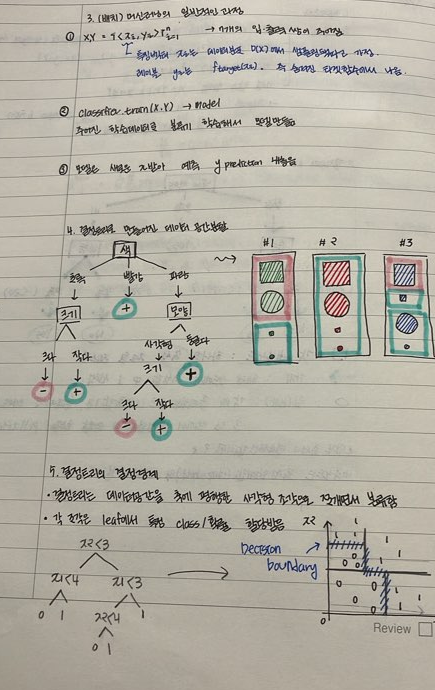 3. (배치) 머신러닝의 일반적인 과정
① XY = {<xi, yi>}ⁿi=1 → n개의 입·출력 쌍이 주어짐
특징벡터 xi는 데이터분포 D(x)에서 샘플링됐다고 가정.
레이블 yi는 ftarget(xi). 즉 숨겨진 타겟함수에서 나옴.
② classifier.train(X,Y) → model
주어진 학습데이터로 분류기 학습해서 모델만듦
③ 모델은 새로운 x받아 예측 y prediction 내놓음
4. 결정트리로 만들어진 데이터 공간분할
색
초록 빨강 파랑
크기 + 모양
크다 작다 사각형 동그라미
- + 크기 +
크다 작다
- +
#1 #2 #3
5. 결정트리의 결정경계
• 결정트리는 데이터공간을 축에 평행한 사각형 조각으로 쪼개면서 분류함
• 각 조각은 leaf에서 특정 class/확률 할당받음
x2<3
x1<4 x1<3
0 1 x2<4 1
0 1
x2
Decision
boundary
1 1 1
0 0 0
Review